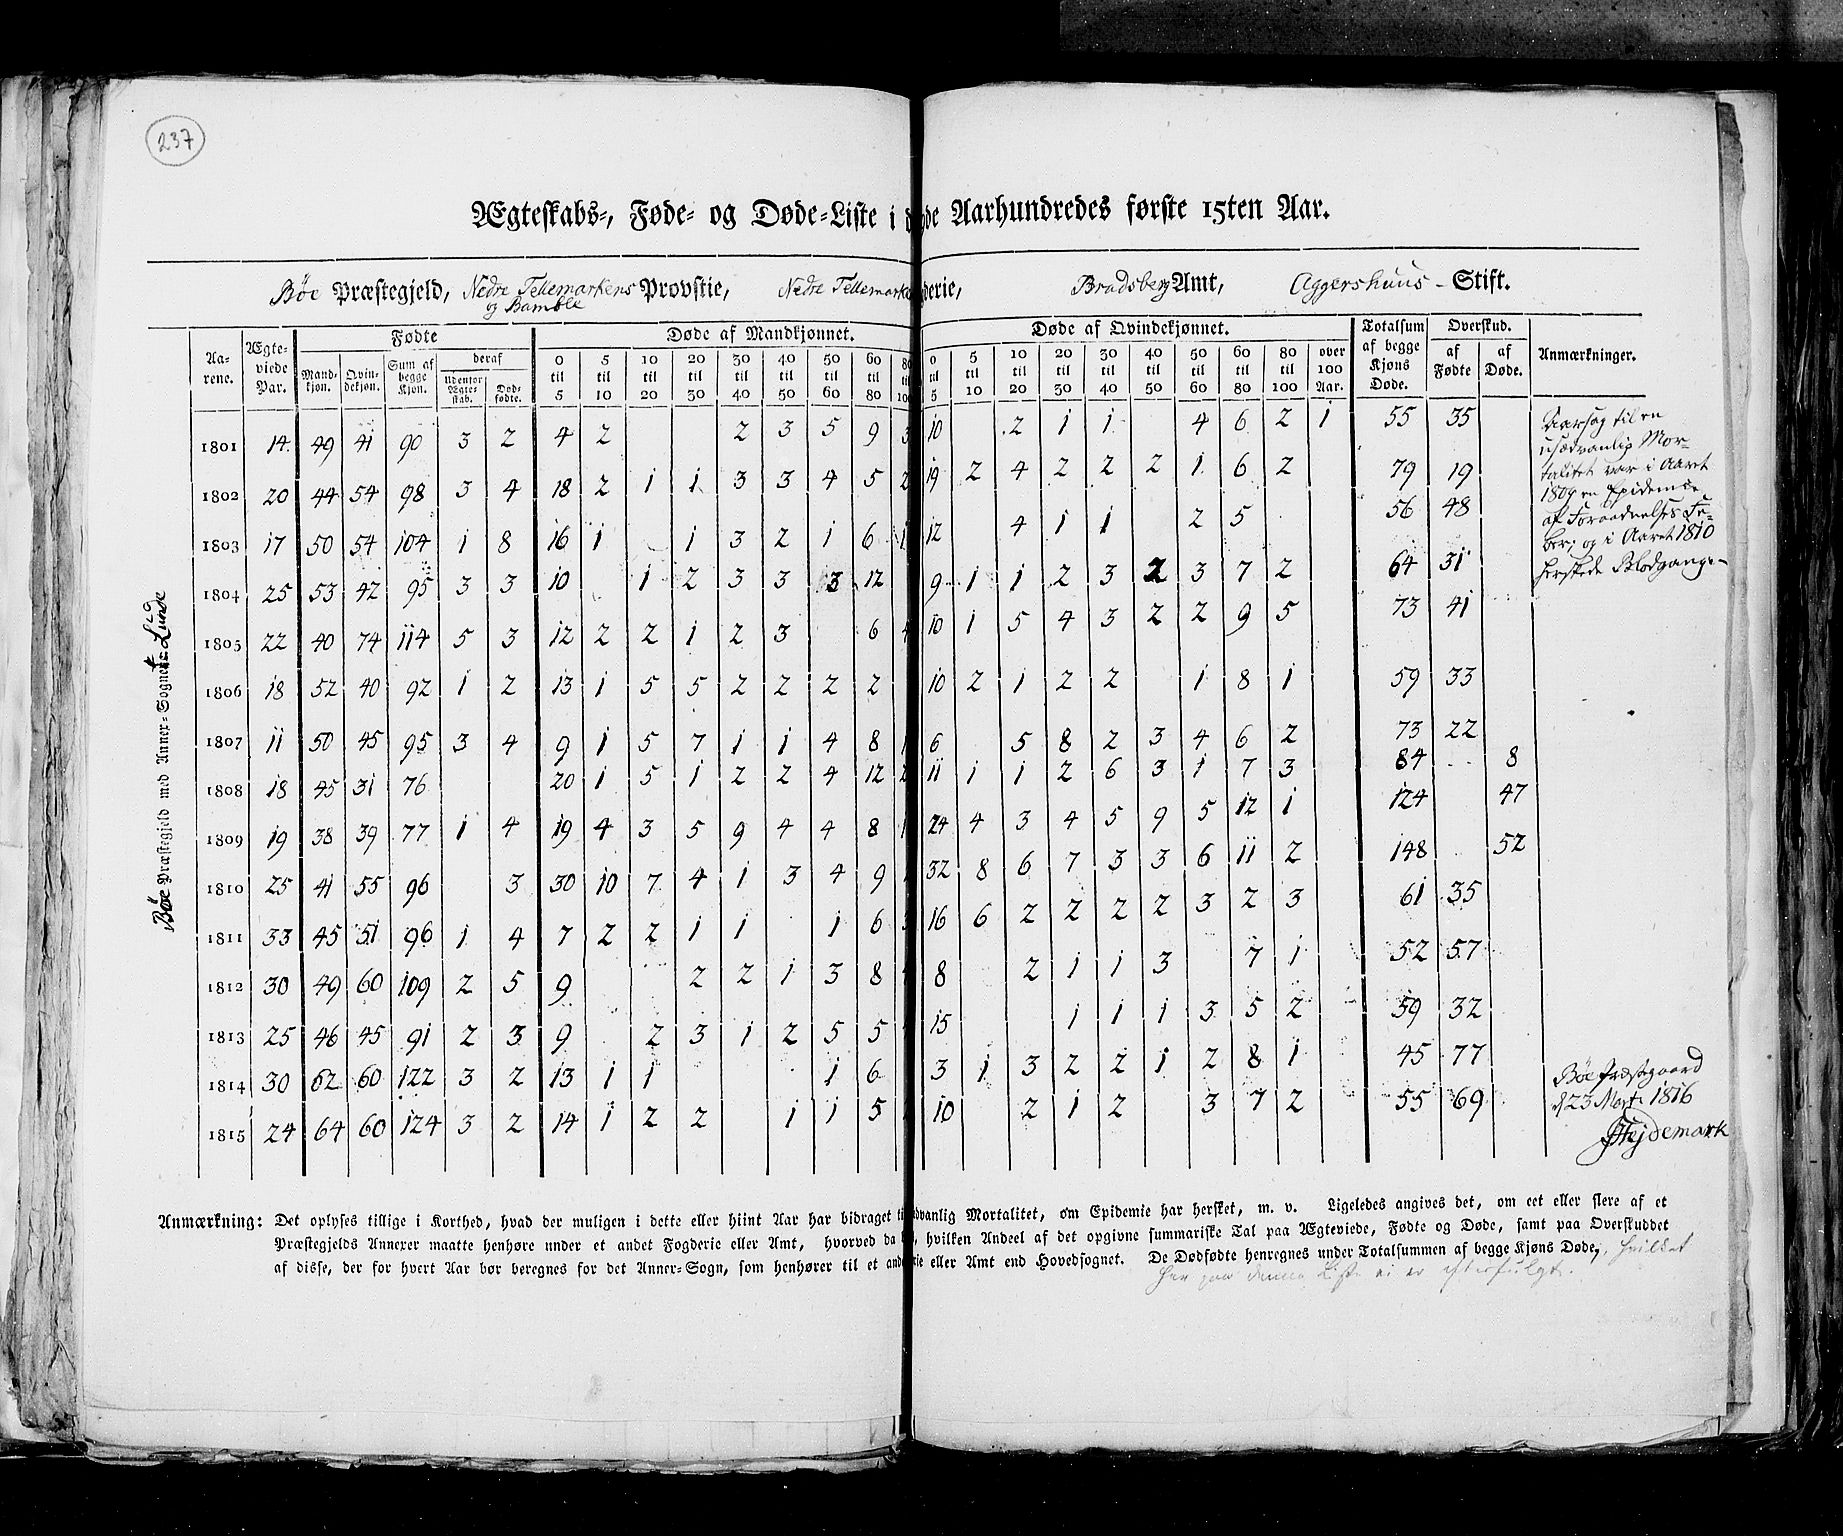 237
Ægteskabs-, Føde- og Døde-Liste i d de Aarhundredes første 15ten Aar.
Bøe Præstegjeld, Nedre Tellemarkens og Bamble Provstie, Nedre Tellemarke derie, Bradsberg Amt, Aggershuus - Stift.
Bøe Præstegjeld med Annex-Sogne: Lunde
Aarene. Ægteviede Par. Fødte Døde af Mandkjønnet. Døde af Qvindekjønnet. Totalsum af begge Kjøns Døde. Overskud. Anmærkninger.
Mandkjøn. Qvindekjøn. Sum af begge Kjøn. deraf af Fødte af Døde.
Udenfor Ægteskab. Dødfødte.
0 til 5 5 til 10 10 til 20 20 til 30 30 til 40 40 til 50 50 til 60 60 til 80 80 til 100 0 til 5 5 til 10 10 til 20 20 til 30 30 til 40 40 til 50 50 til 60 60 til 80 80 til 100 over 100 Aar.
1801 14 49 41 90 3 2 4 2 2 3 5 9 3 10 2 1 1 4 6 2 1 55 35
1802 20 44 54 98 3 4 18 2 1 1 3 3 4 5 2 19 2 4 2 2 2 1 6 2 79 19
1803 17 50 54 104 1 8 16 1 1 3 2 1 6 1 12 4 1 1 2 5 56 48
1804 25 53 42 95 3 3 10 1 2 3 3 3 12 9 1 1 2 3 2 3 7 2 64 31
1805 22 40 74 114 5 3 12 2 2 1 2 3 6 4 10 1 5 4 3 2 2 9 5 73 41
1806 18 52 40 92 1 2 13 1 5 5 2 2 2 2 10 2 1 2 2 1 8 1 59 33
1807 11 50 45 95 3 4 9 1 5 7 1 1 4 8 1 6 5 8 2 3 4 6 2 73 22
1808 18 45 31 76 20 1 5 1 2 2 4 12 2 11 1 1 2 6 3 1 7 3 84 8
1809 19 38 39 77 1 4 19 4 3 5 9 4 4 8 1 24 4 3 4 5 9 5 12 1 124 47
1810 25 41 55 96 3 30 10 7 4 1 3 4 9 32 8 6 7 3 3 6 11 2 148 52
1811 33 45 51 96 1 4 7 2 2 1 1 1 6 3 16 6 2 2 2 2 3 2 3 61 35
1812 30 49 60 109 2 5 9 2 2 1 3 8 8 2 1 1 3 7 1 52 57
1813 25 46 45 91 2 3 9 2 3 1 2 5 5 15 1 1 1 3 5 2 59 32
1814 30 62 60 122 3 2 13 1 1 1 6 3 1 3 2 2 1 2 8 1 45 77
1815 24 64 60 124 3 2 14 1 2 2 1 1 5 10 2 1 2 3 7 2 55 69
Aarsag til en
usædvanlig Mor-
talitet var i Aaret
1809 en Epidemie
af Foraadnelses Fe-
ber; og i Aaret 1810
herskede Blodgang
Bøe Præstgaard
d 23 Marti 1816
Hejdemark
Anmærkning: Det oplyses tillige i Korthed, hvad der muligen i dette eller hiint Aar har bidraget til dvanlig Mortalitet, om Epidemie har hersket, m. v. Ligeledes angives det, om eet eller flere af et
Præstegjelds Annexer maatte henhøre under et andet Fogderie eller Amt, hvorved da , hvilken Andeel af det opgivne summariske Tal paa Ægteviede, Fødte og Døde, samt paa Overskuddet
af disse, der for hvert Aar bør beregnes for det Annex-Sogn, som henhører til et and rie eller Amt end Hovedsognet. De Dødfødte henregnes under Totalsummen af begge Kjøns Døde, hvilket
her paa denne Liste ei er efterfulgt.